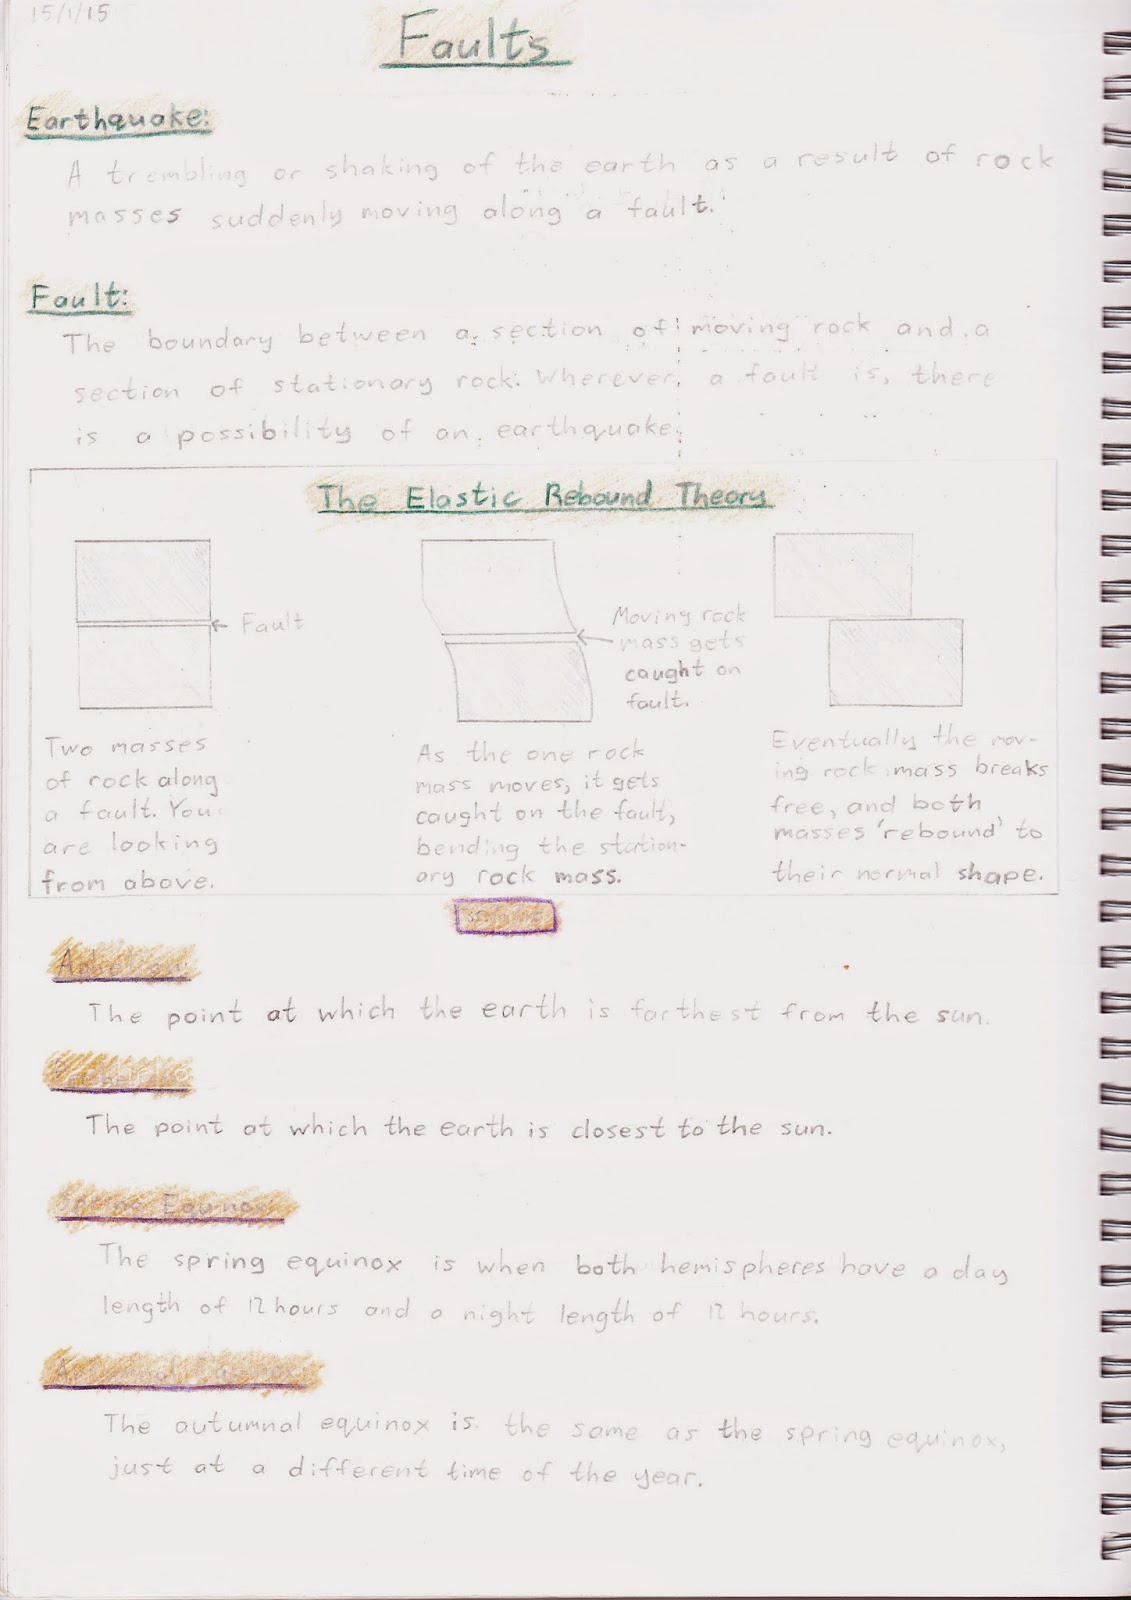 15/1/15
Faults
Earthquake:
A trembling or shaking of the earth as a result of rock
masses suddenly moving along a fault.
Fault:
The boundary between a section of moving rock and a
section of stationary rock. Wherever a fault is, there
is a possibility of an earthquake.
The Elastic Rebound Theory
Fault
Moving rock
mass gets
caught on
fault.
Two masses
of rock along
a fault. You
are looking
from above.
As the one rock
mass moves, it gets
caught on the fault,
bending the station-
ary rock mass.
Eventually the mov-
ing rock mass breaks
free, and both
masses 'rebound' to
their normal shape.
The point at which the earth is farthest from the sun.
The point at which the earth is closest to the sun.
Spring Equinox:
The spring equinox is when both hemispheres have a day
length of 12 hours and a night length of 12 hours.
Autumnal Equinox:
The autumnal equinox is the same as the spring equinox,
just at a different time of the year.